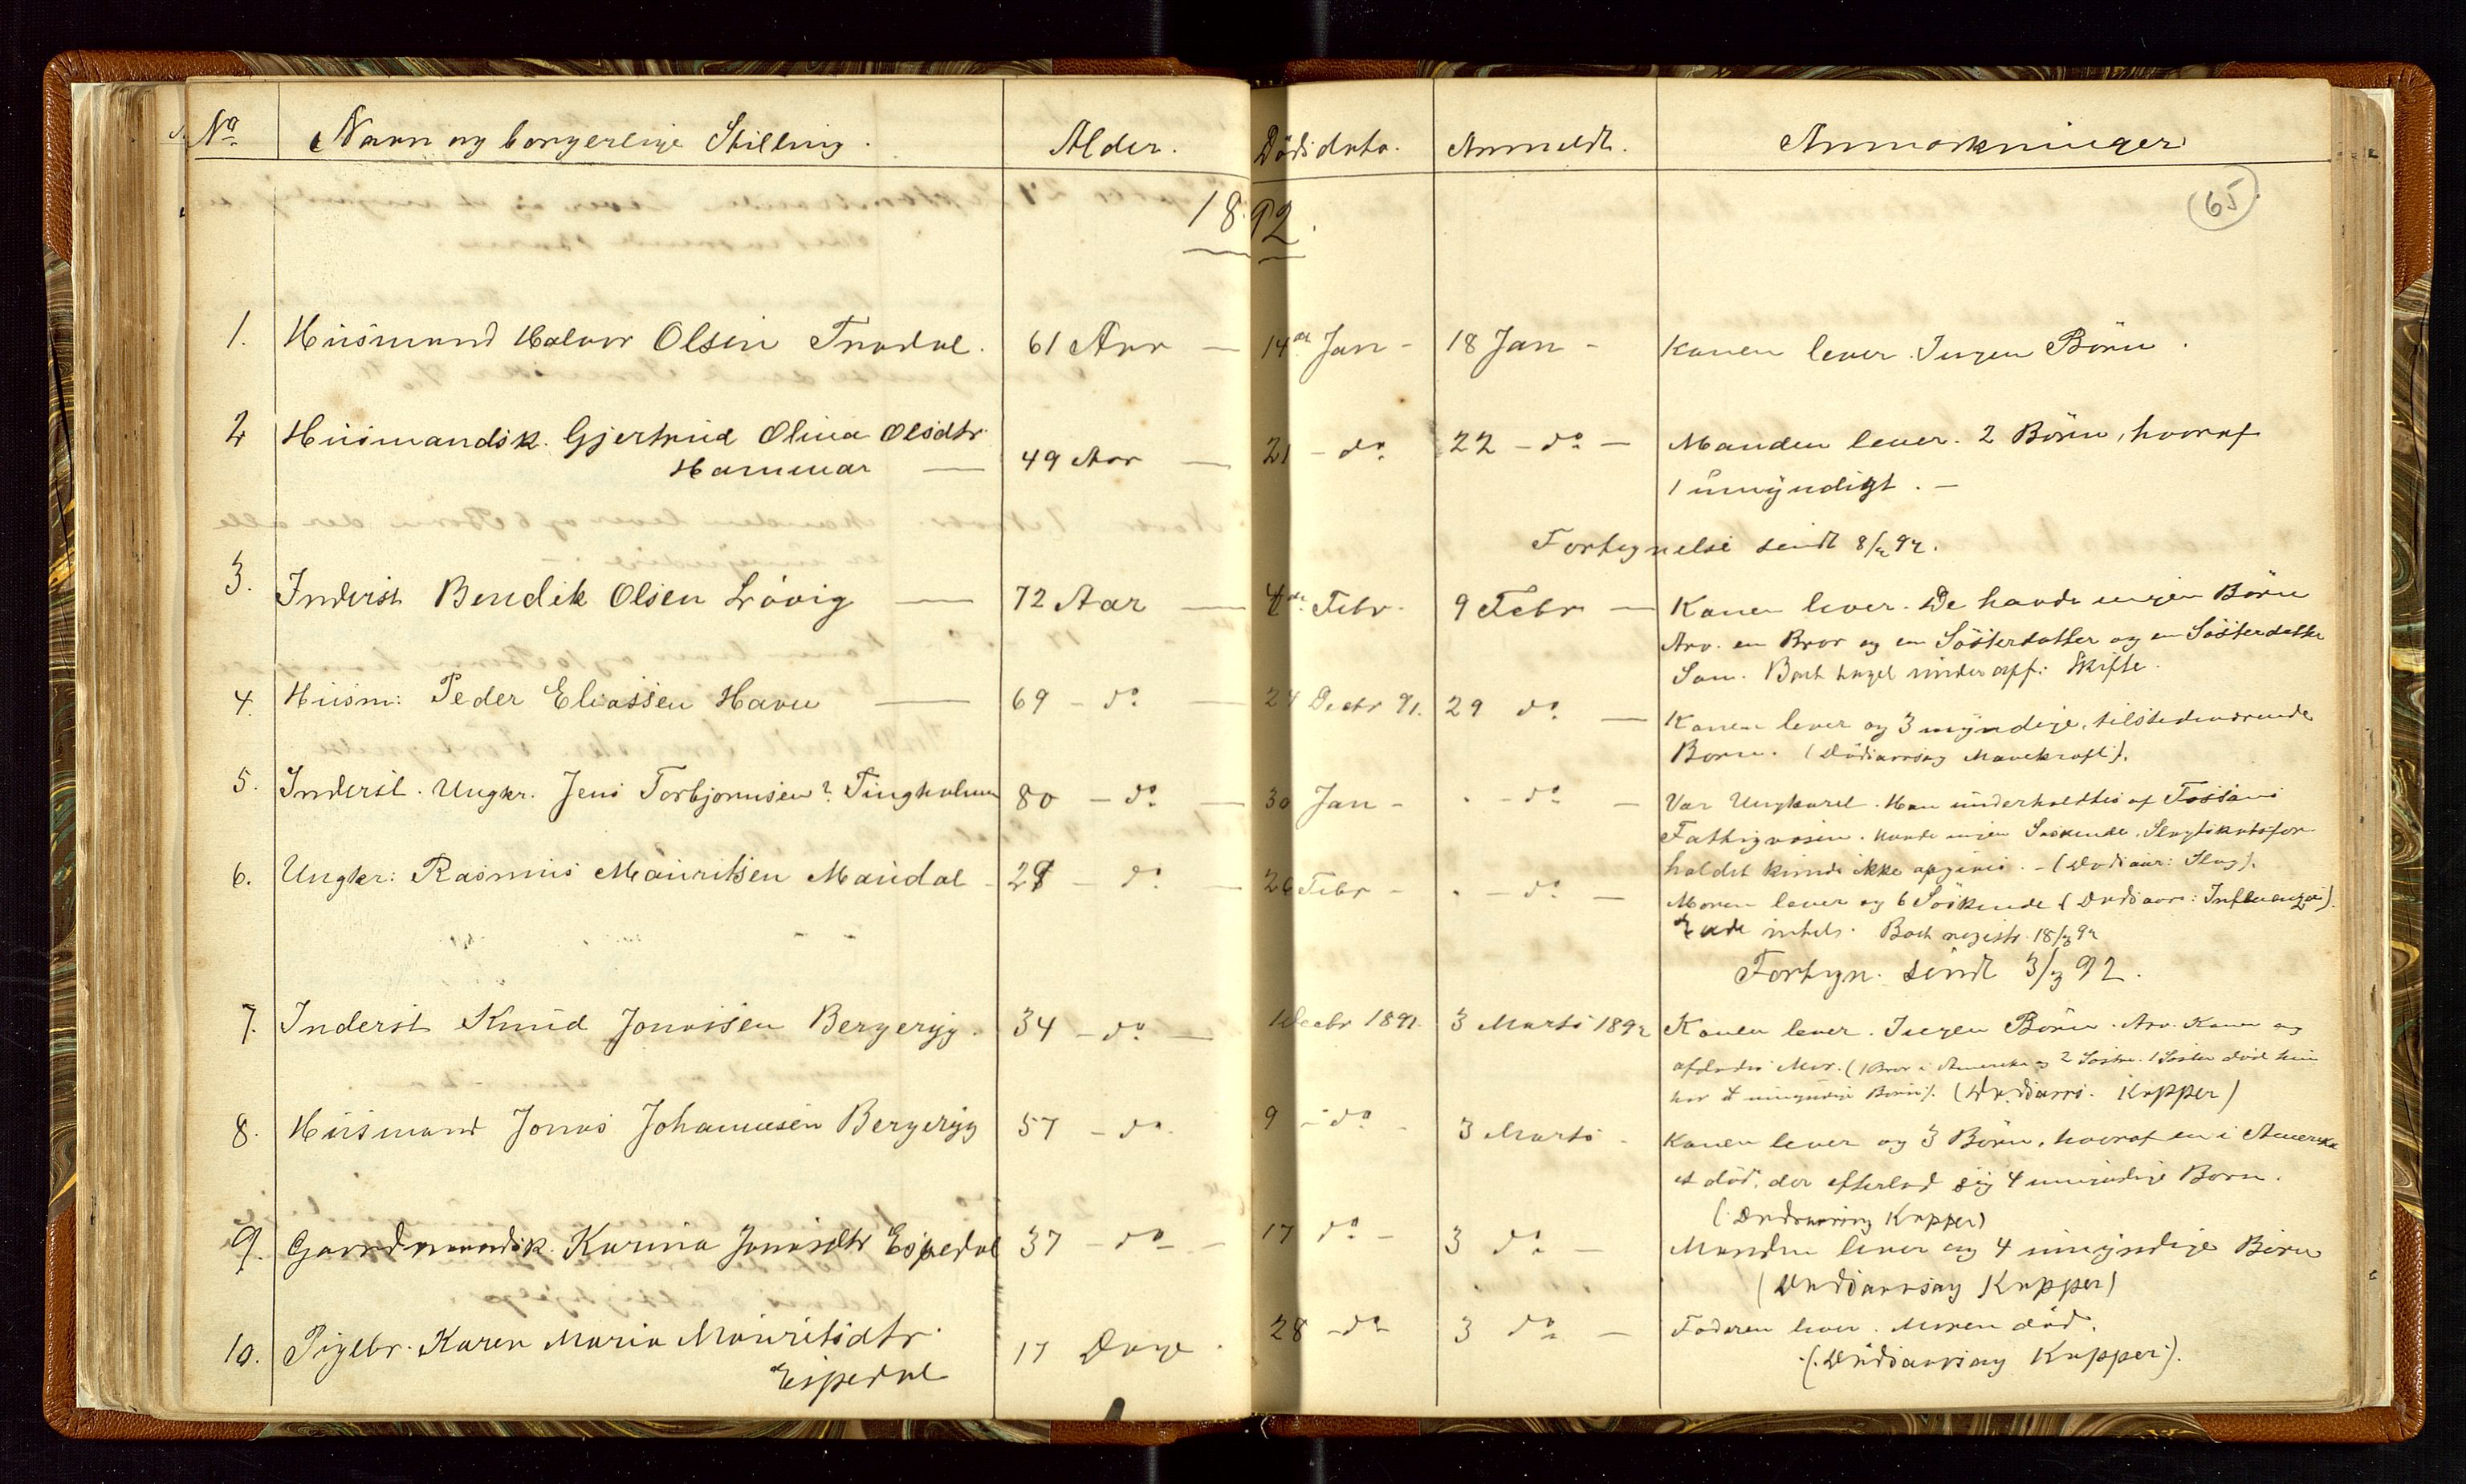 No Navn og borgerlige Stilling. Alder. Dödsdato. Anmeldt. Anmærkninger
65
1892.
1. Huusmand Halvor Olsen Fradal. 61 Aar — 14de Jan - 18 Jan - Konen lever. Ingen Börn.
2 Huusmandsk. Gjertrud Olina Olsdtr.
Hammar — 49 Aar — 21 - do 22 - do - Manden lever. 2 Börn, hvoraf
1 umyndigt. -
Fortegnelse sendt 8/2 92.
3. Inderst Bendik Olsen Lövig — 72 Aar — 4de Febr. 9 Febr — Konen lever. De havde ingen Börn
Arv. en Bror og en Sösterdatter og en Sösterdatter
Sön. Boet taget under off: Skifte.
4. Huusm: Peder Eliassen Havn — 69 - do — 24 Decbr 91. 29 do — Konen lever og 3 myndige, tilstedeværende
Börn. (Dödsaarsag Mavekræft).
5. Inderst. Ungkr. Jens Torbjornsen? Tingholmen 80 - do — 30 Jan - . - do — Var Ungkarl. Han underholdtes af Fossans
Fattigvæsen. Havde ingen Söskende. Slegtskabsfor
holdet kunde ikke opgives. - (Dödsaar: Slag).
6. Ungkr: Rasmus Mauritsen Maudal - 28 - do — 26 Febr - . - do — Moren lever og 6 Söskende (Dödsaars: Influenza).
Boet registr. 18/3 92
Fortegn. sendt 3/3 92.
7. Inderst Knud Jonassen Bergeryg. 34 - do — 1 Decbr 1891. 3 Marts 1892 Konen lever. Ingen Börn. Arv. Konen og
afdödes Mor. (1 Bror i Amerika og 2 Söstre. 1 Söster död hun
har 4 umyndige Börn). (Dödsaars. Kopper)
8. Huusmand Jonas Johannesen Bergeryg 57 - do. 9 - do - 3 Marts - Konen lever og 3 Börn, hvoraf en i Amerika
et död, der efterlod sig 4 umyndige Börn.
(Dödsaarsag Kopper)
9. Gaardmandsk. Karina Jonasdtr Espedal 37 - do - 17 do - 3 do - Manden lever og 4 umyndige Börn
(Dödsaarsag Kopper)
10. Pigebr. Karen Maria Mauritsdtr.
Espedal 17 Dage. 28 - do - 3 do - Faderen lever. Moren död.
(Dödsaarsag Kopper).